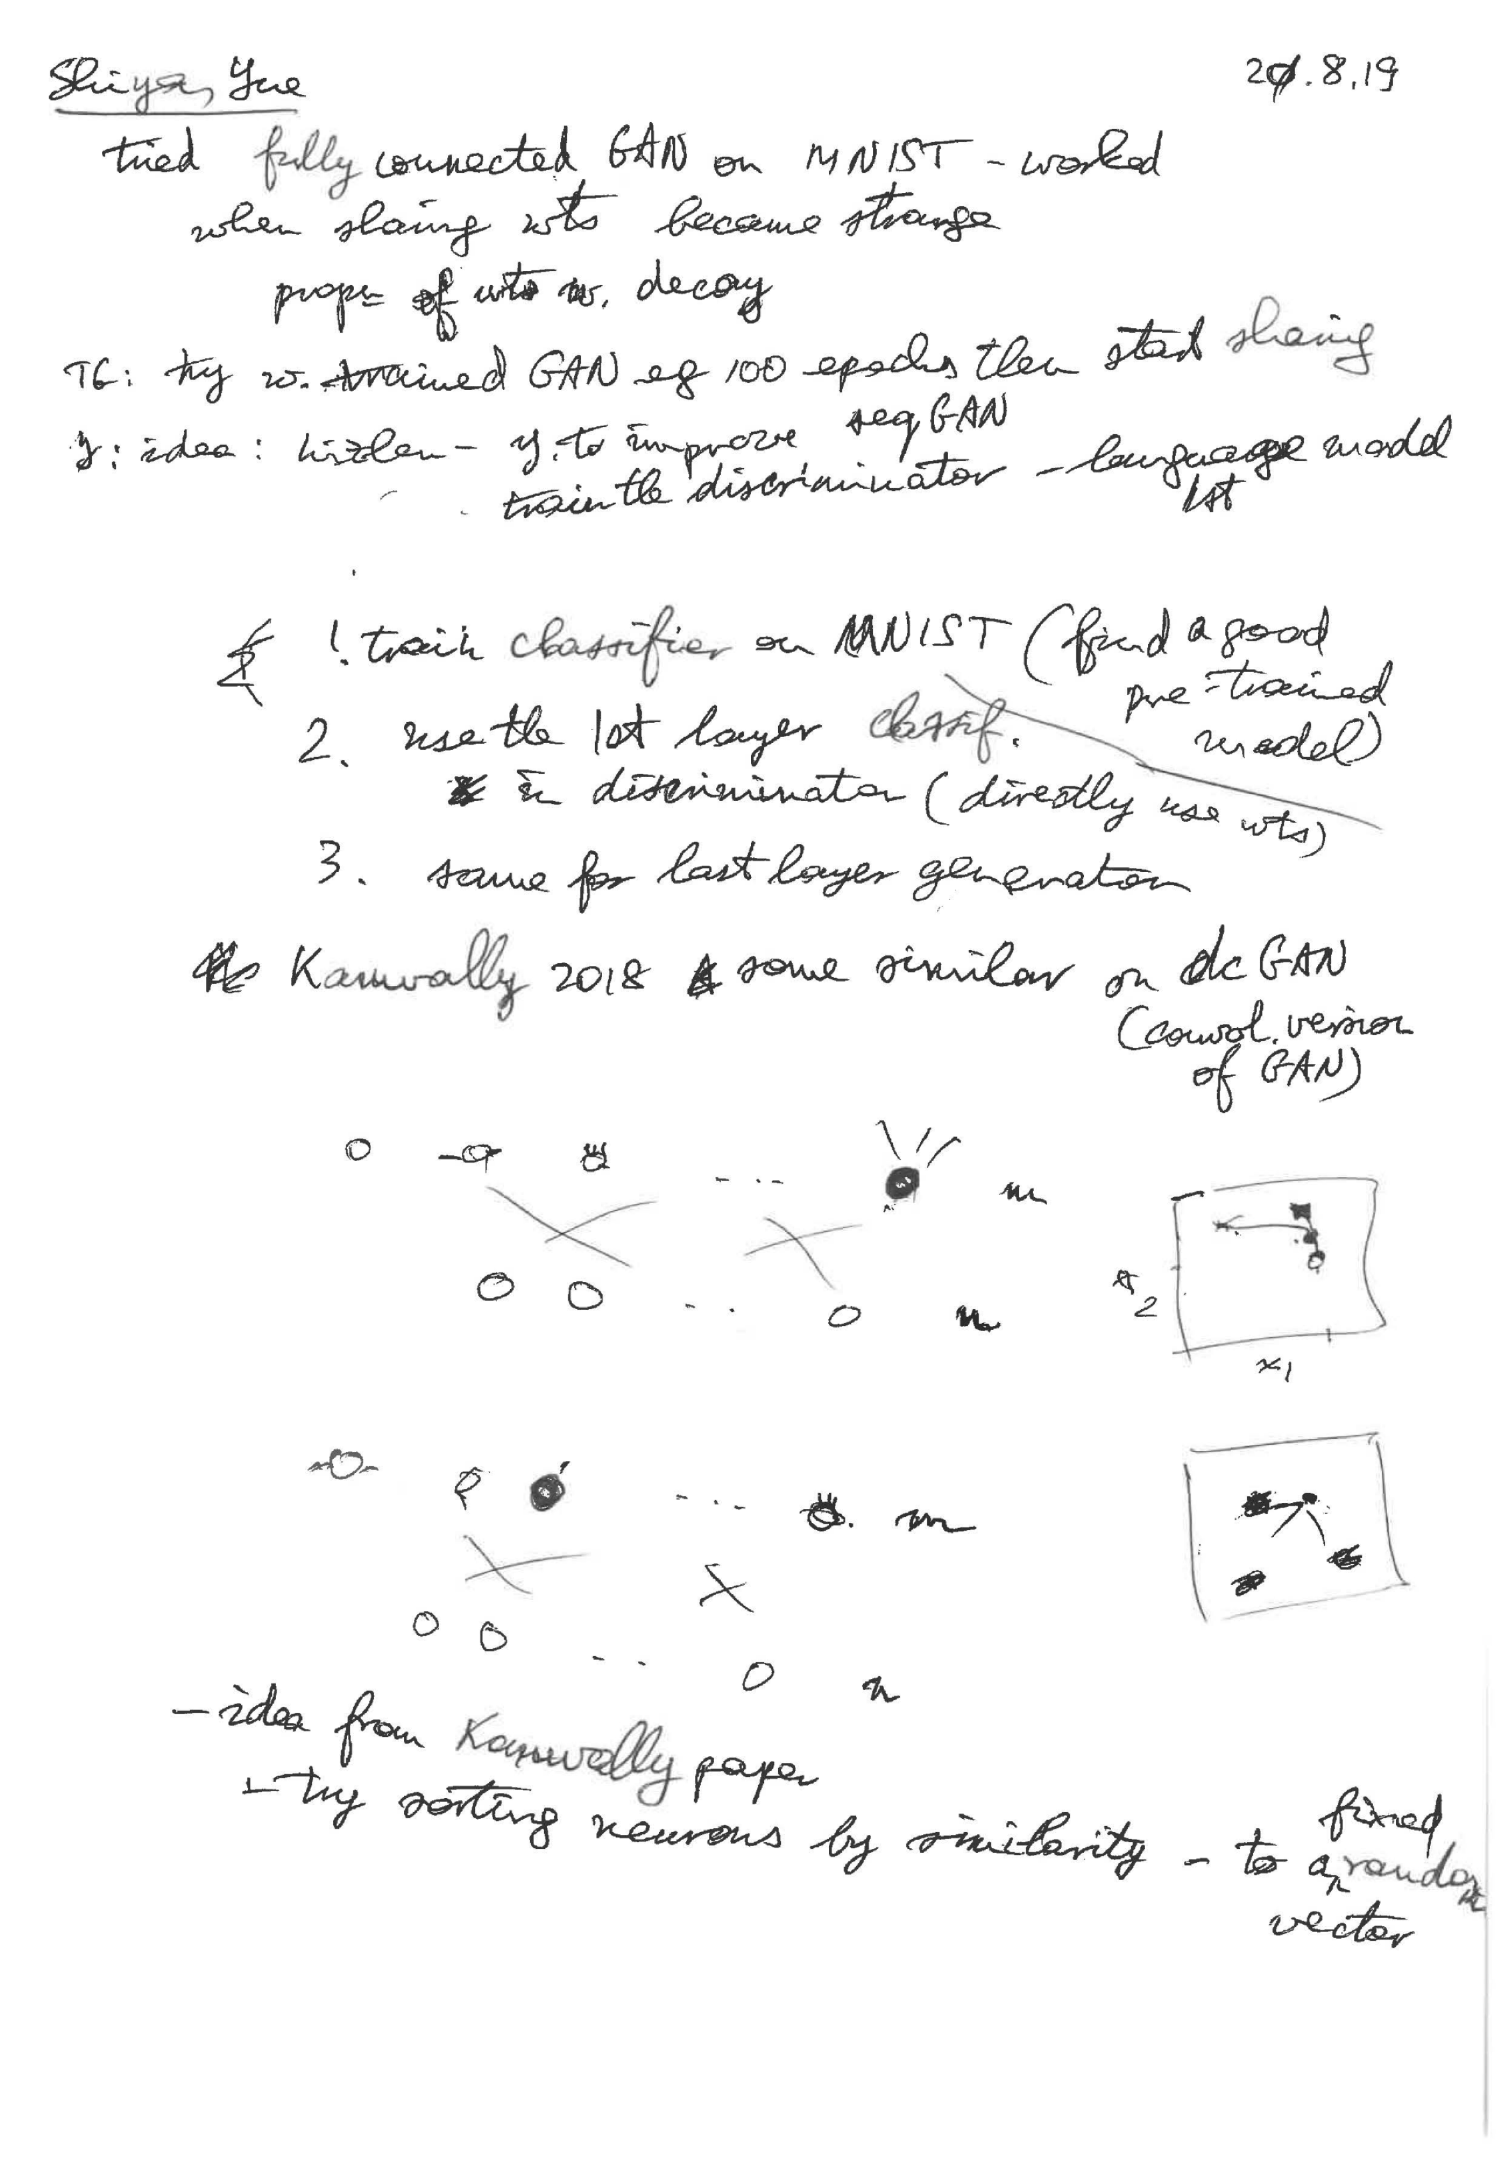 Shiya, Yue 20.8.19
tried fully connected GAN on MNIST - worked
when sharing wts became strange
prop= of wts w. decay
TG: try w. trained GAN eg 100 epochs then start sharing
Y: idea: - Y. to improve seqGAN
train the discriminator - language model
1st
1. train classifier on MNIST (find a good
pre-trained
model)
2. use the 1st layer classif.
in discriminator (directly use wts)
3. same for last layer generator
Kanwally 2018 some similar on dcGAN
(convol. version
of GAN)
... m
x2
.. n
x1
... m
.. n
- idea from Kanwally paper
- try sorting neurons by similarity - to a fixed random
vector